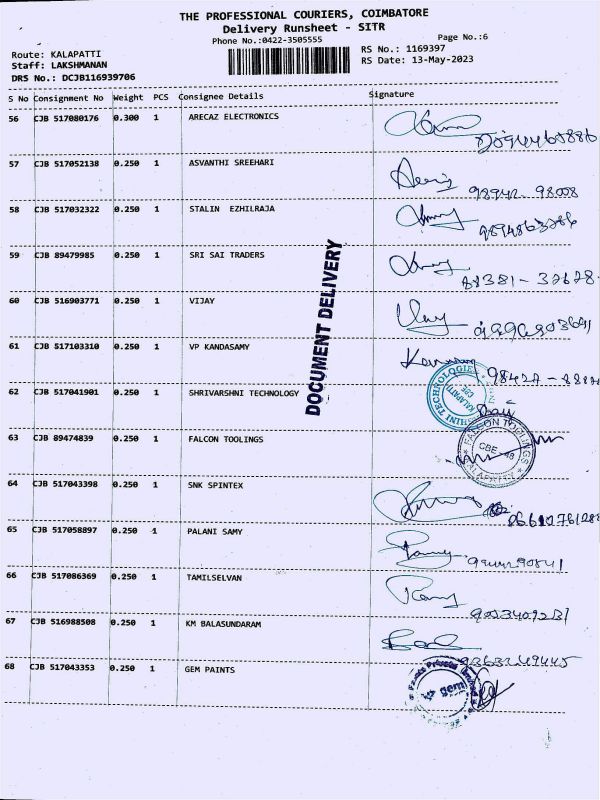 THE PROFESSIONAL COURIERS, COIMBATORE
Delivery Runsheet - SITR
Phone No.:0422-3505555
Page No.:6
Route: KALAPATTI
RS No.: 1169397
Staff: LAKSHMANAN
RS Date: 13-May-2023
DRS No.: DCJB116939706
S No Consignment No Weight PCS Consignee Details Signature
56 CJB 517080176 0.300 1 ARECAZ ELECTRONICS
57 CJB 517052138 0.250 1 ASVANTHI SREEHARI
98942-98008
58 CJB 517032322 0.250 1 STALIN EZHILRAJA
9894863286
59 CJB 89479985 0.250 1 SRI SAI TRADERS
DOCUMENT DELIVERY
60 CJB 516903771 0.250 1 VIJAY
61 CJB 517103310 0.250 1 VP KANDASAMY
62 CJB 517041901 0.250 1 SHRIVARSHNI TECHNOLOGY
KALAPATTI
CBE
63 CJB 89474839 0.250 1 FALCON TOOLINGS
FALCON TOOLINGS
CBE - 48
KALAPATTY
64 CJB 517043398 0.250 1 SNK SPINTEX
65 CJB 517058897 0.250 1 PALANI SAMY
66 CJB 517086369 0.250 1 TAMILSELVAN
67 CJB 516988508 0.250 1 KM BALASUNDARAM
68 CJB 517043353 0.250 1 GEM PAINTS
gem